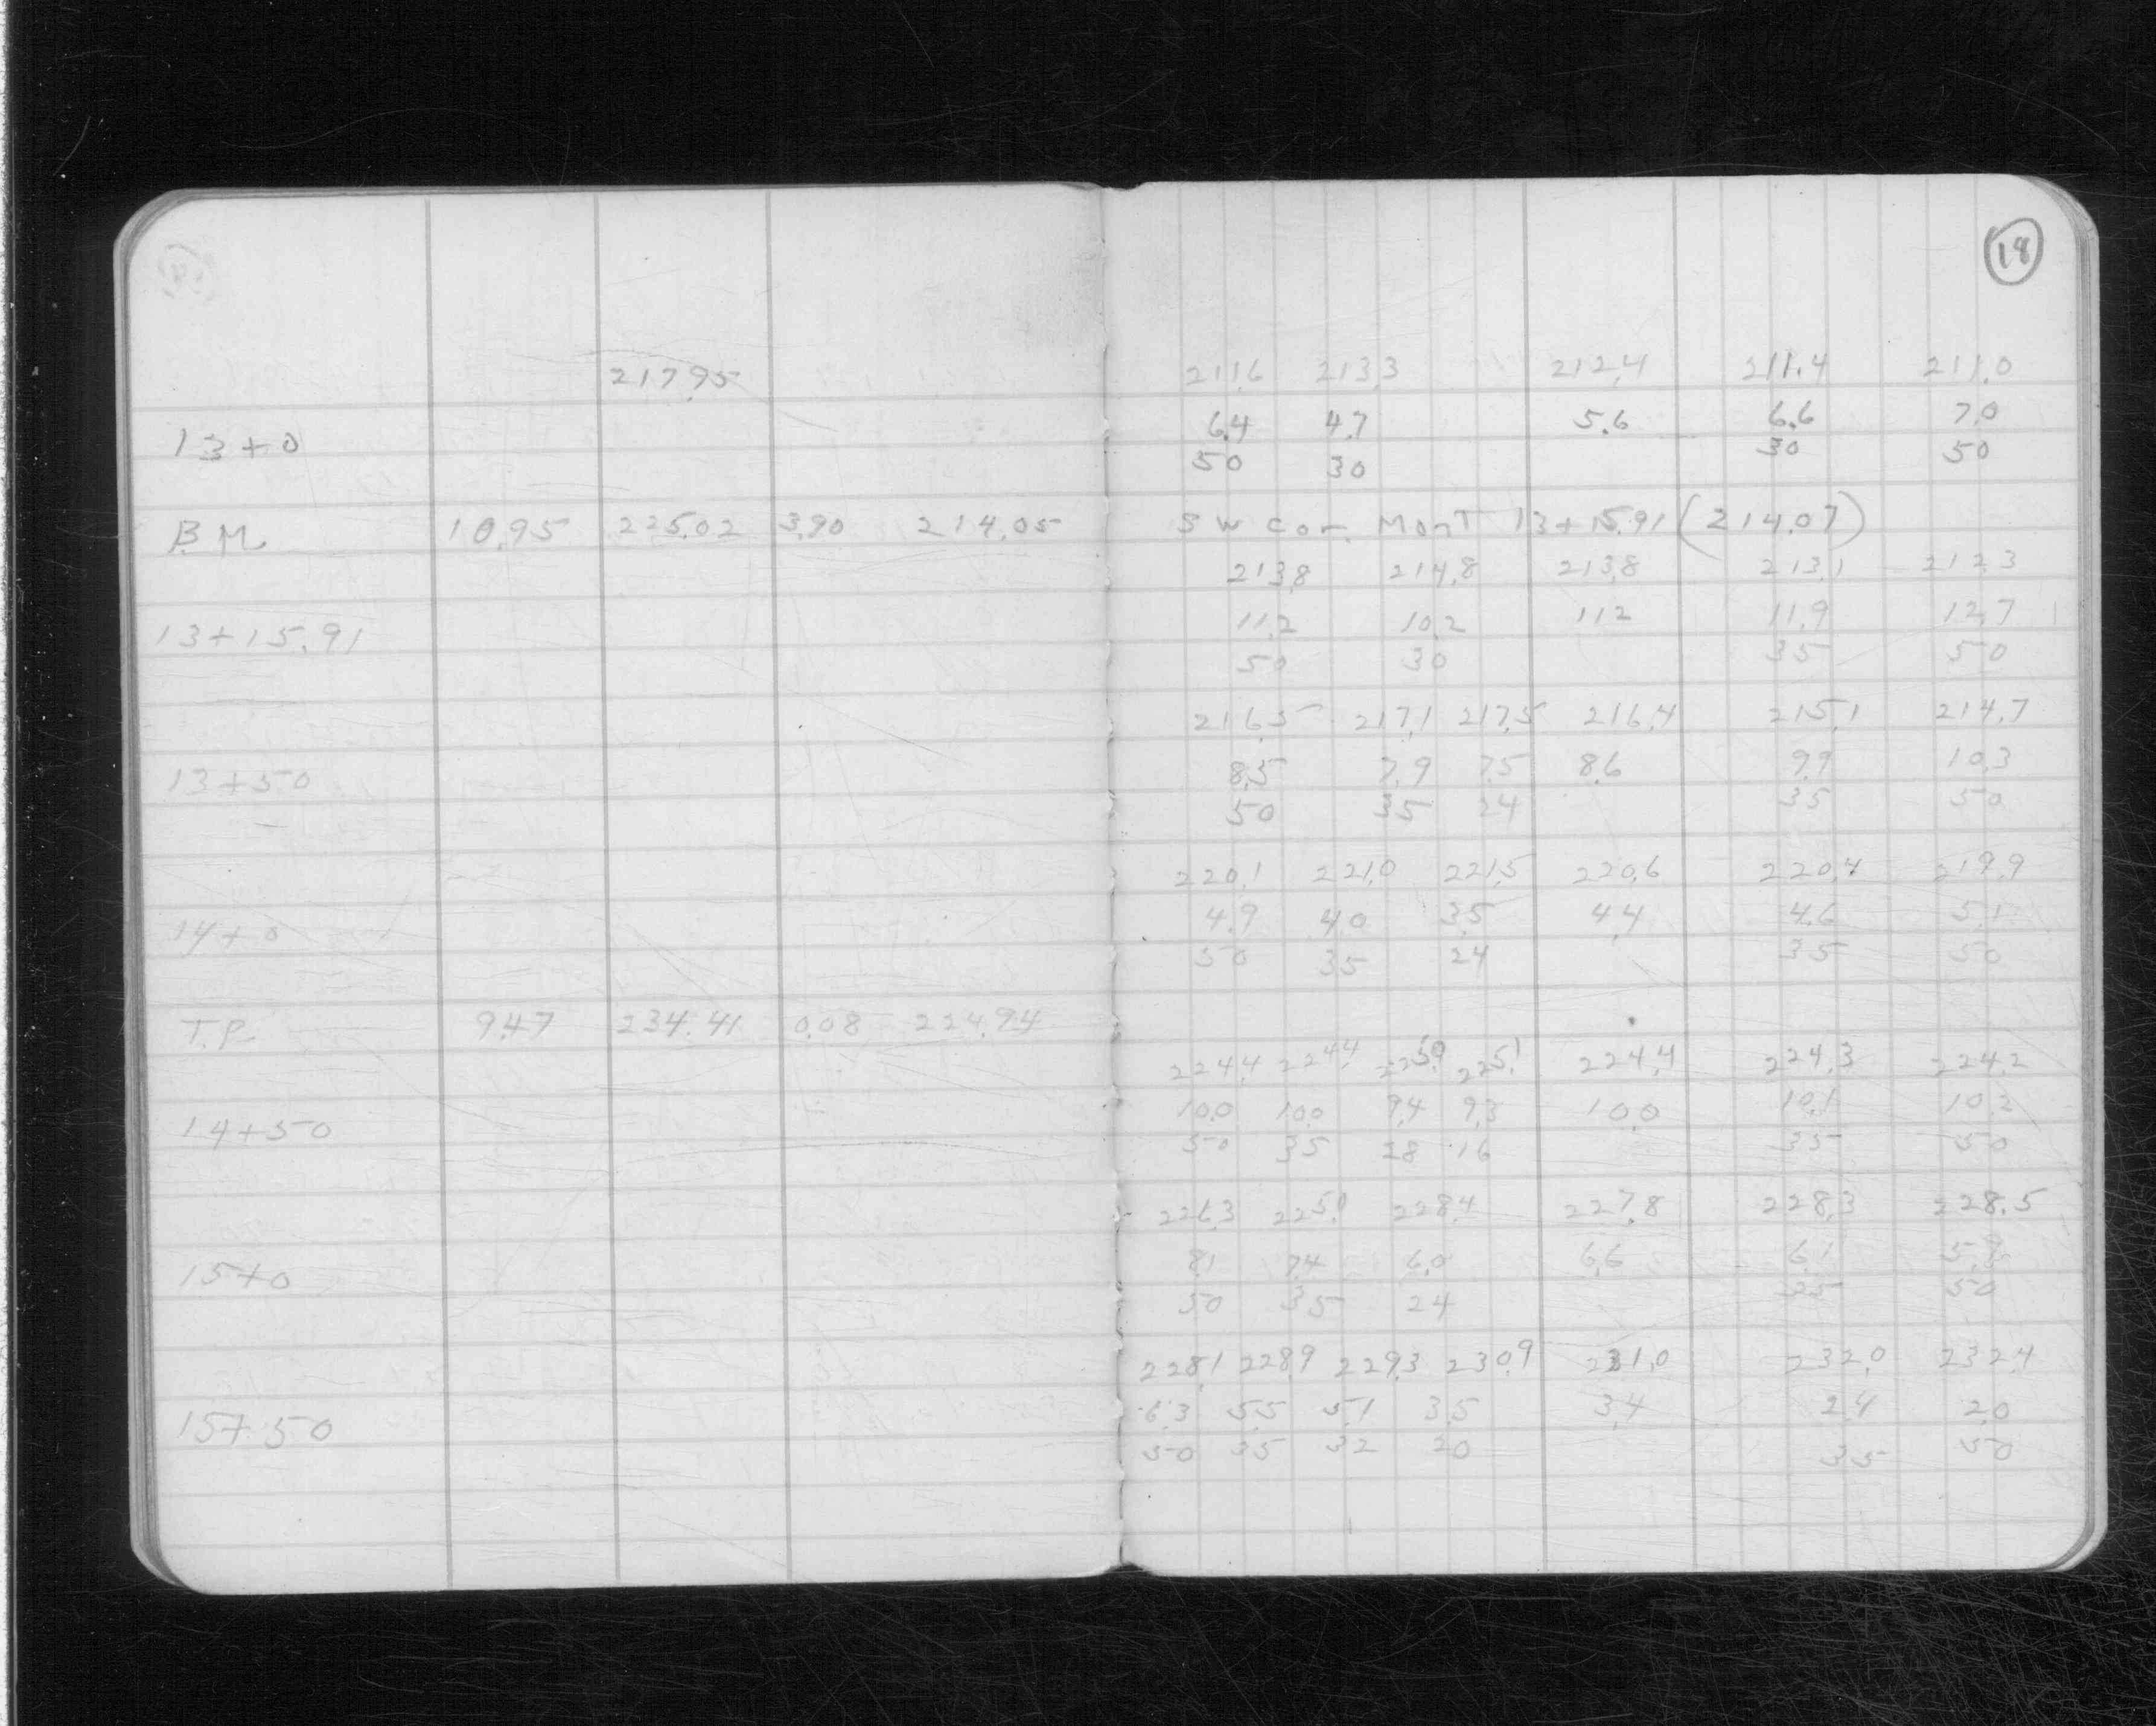 18
217.95 211.6 213.3 212.4 211.4 211.0
6.4 4.7 5.6 6.6 7.0
13+0 50 30 30 50
B.M. 10.95 225.02 3.90 214.05 SW Cor. Mont 13+15.91 (214.07)
213.8 214.8 213.8 213.1 212.3
13+15.91 11.2 10.2 11.2 11.9 12.7
50 30 35 50
216.5 217.1 217.5 216.4 215.1 214.7
13+50 8.5 7.9 7.5 8.6 9.9 10.3
50 35 24 35 50
220.1 221.0 221.5 220.6 220.4 219.9
14+0 4.9 4.0 3.5 4.4 4.6 5.1
50 35 24 35 50
T.P. 9.47 234.41 0.08 224.94
224.4 224.4 225.0 225.1 224.4 224.3 224.2
14+50 10.0 10.0 9.4 9.3 10.0 10.1 10.2
50 35 28 16 35 50
226.3 228.4 227.8 228.3 228.5
15+0 8.1 7.4 6.0 6.6 6.1 5.9
50 35 24 35 50
228.1 228.9 229.3 230.9 231.0 232.0 232.4
15+50 6.3 5.5 5.1 3.5 3.4 2.4 2.0
50 35 32 20 35 50